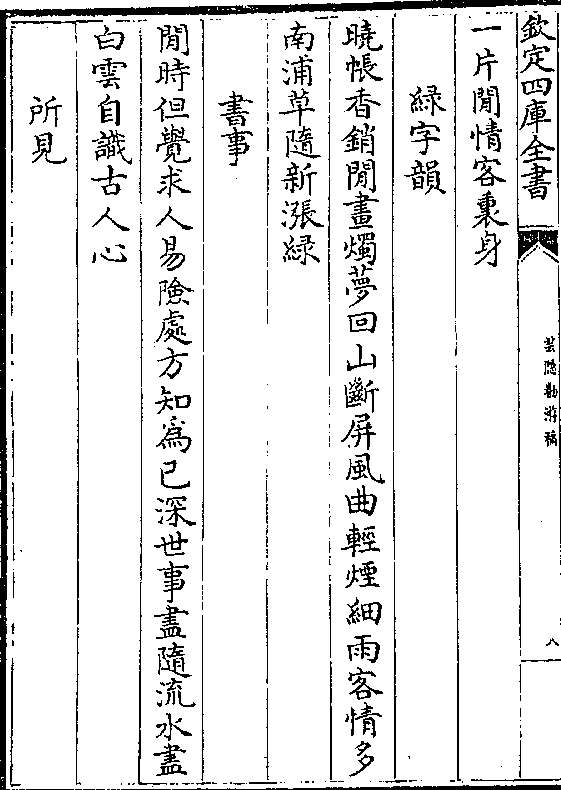 欽定四庫全書
芸隱勌游稿
八
一片閒情客裏身
緑字韻
曉帳香銷閒畫燭夢回山斷屏風曲輕煙細雨客情多
南浦草隨新漲緑
書事
閒時但覺求人易險處方知為已深世事盡隨流水盡
白雲自識古人心
所見